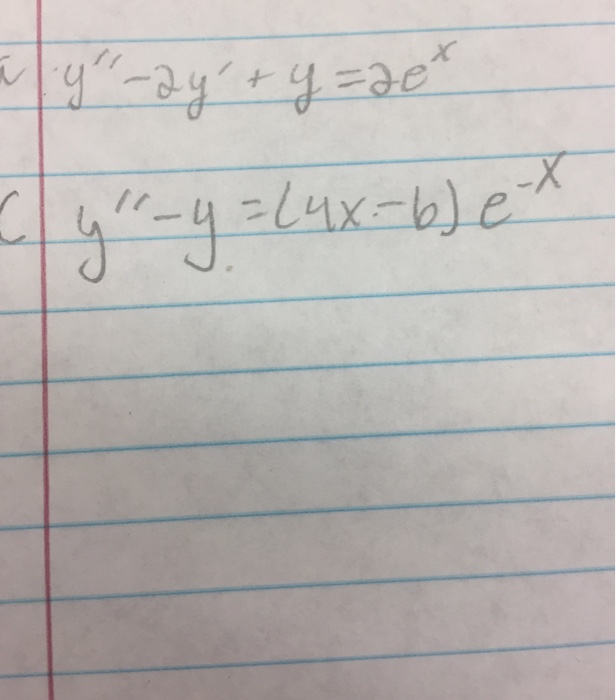 a y'' - 2y' + y = 2e^x
c y'' - y = (4x - 6) e^-x